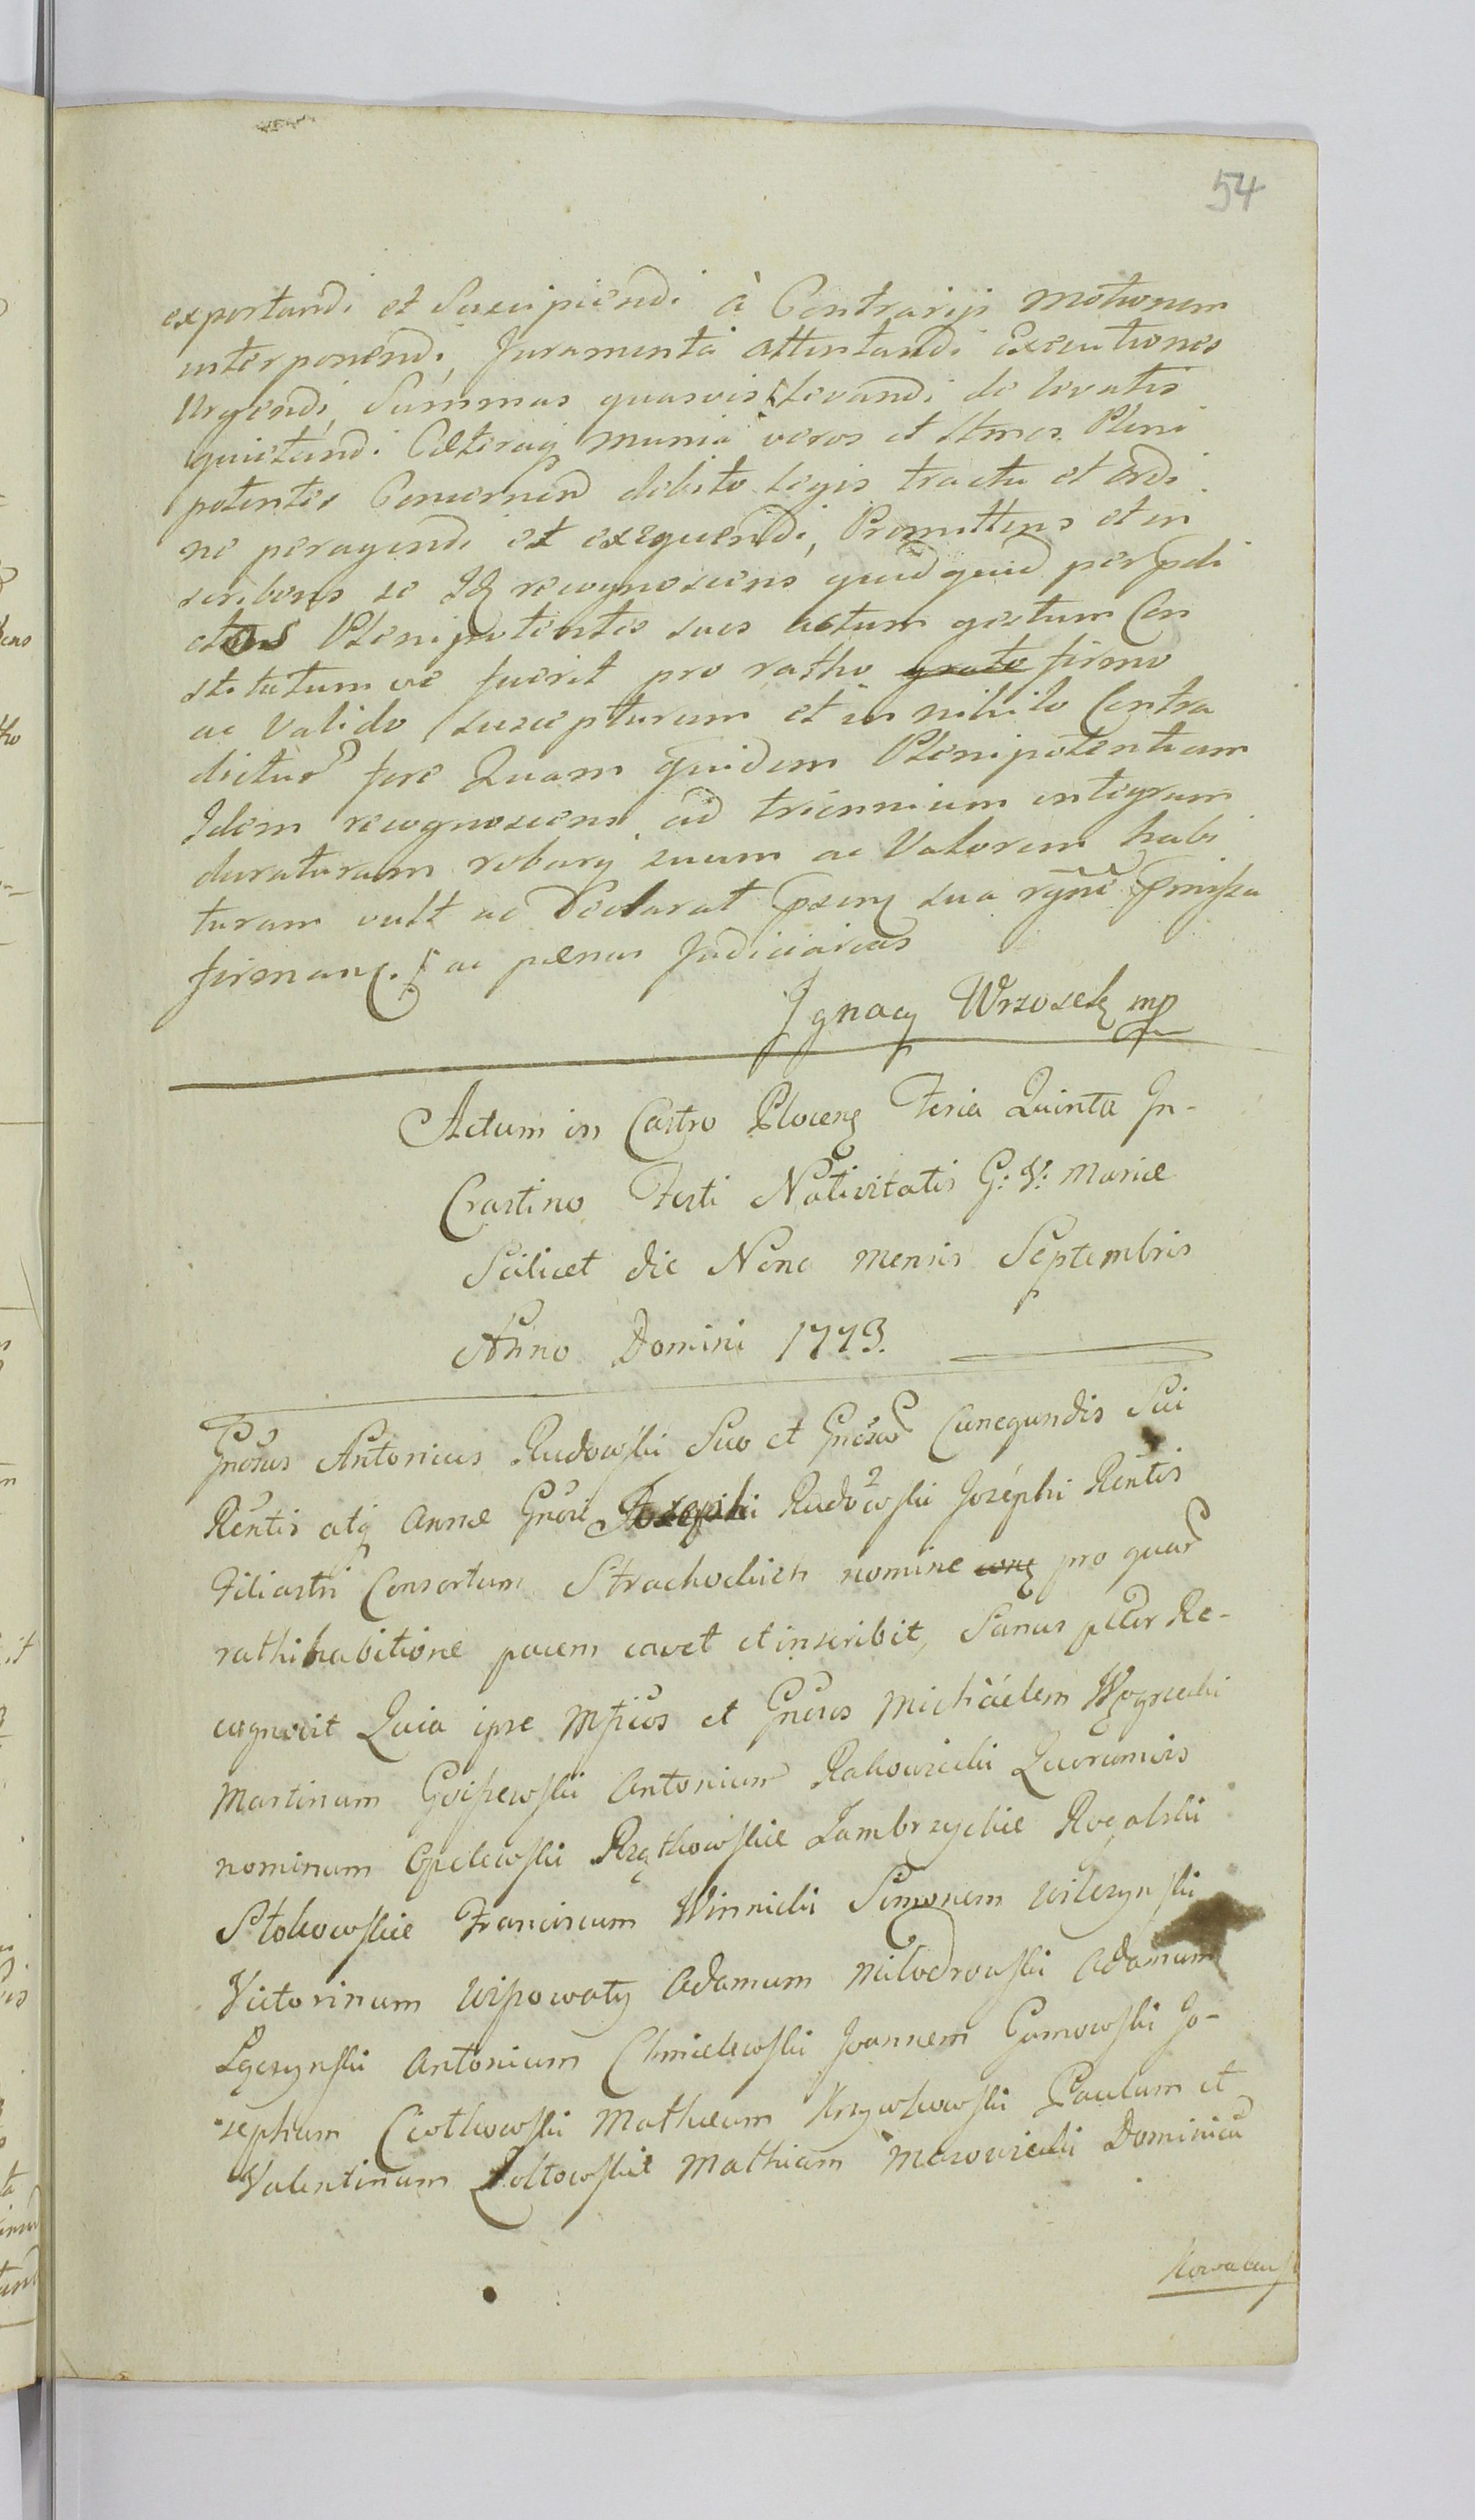 54
exportandi et Suscipiendi à Contrarijs Motionem
interponendi, Juramenta attentandi Executiones
Urgendi, Summas quasvis levandi de levatis
quietandi Caeteraq munia veros et ltmos Pleni
potentes Concernen debito legis tractu et ordi
ne peragendi et exequendi, Promittens et in
scribens se Idq recognoscens quidquid per pdi
ctos Plenipotentes suos actum gestum Con
stitutum ve fuerit pro ratho grato firmo
ac Valido suscepturum et in nihilo Contra
dictur fore Quam quidem Plenipotentiam
Idem recognoscens ad triennium integrum
duraturam roburq suum ac Valorem habi
turam vult ac Declarat sua rgne pmissa
firman. ac penas Judiciarias
Ignacy Wrzosek mp
Actum in Castro Plocen Feria Quinta In-
Crastino Festi Nativitatis G: V: Mariae
Scilicet die Nona mensis Septembris
Anno Domini 1773.
Gnosus Antonius Rudowski Suo et Gnosae Cunegundis Sui
Rentis atq Annae Gnosi Josephi Rudowski Josephi Rentis
Filiastri Consortum Strachockich nomine pro quar
rathihabitione pacem cavet et inscribit, Sanus pttr Re-
cognovit Quia ipse Mficos et Gnosos Michaelem Wogrecki
Martinum Goissewski Antonium Rakowiecki Quorumvis
nominum Opelewski Rzątkowskie Zambrzyckie Rogalski
Stokowskie Franciscum Winnicki Simonem Wilczynski
Victorinum Wipowaty Adamum Milodrowski Adamum
Lączynski Antonium Chmielewski Joannem Gumowski Jo-
sephum Ciothowski Mathaeum Krzywkowski Paulum et
Valentinum Zoltowskie Mathiam Mazowiecki Dominicu
Kowalews